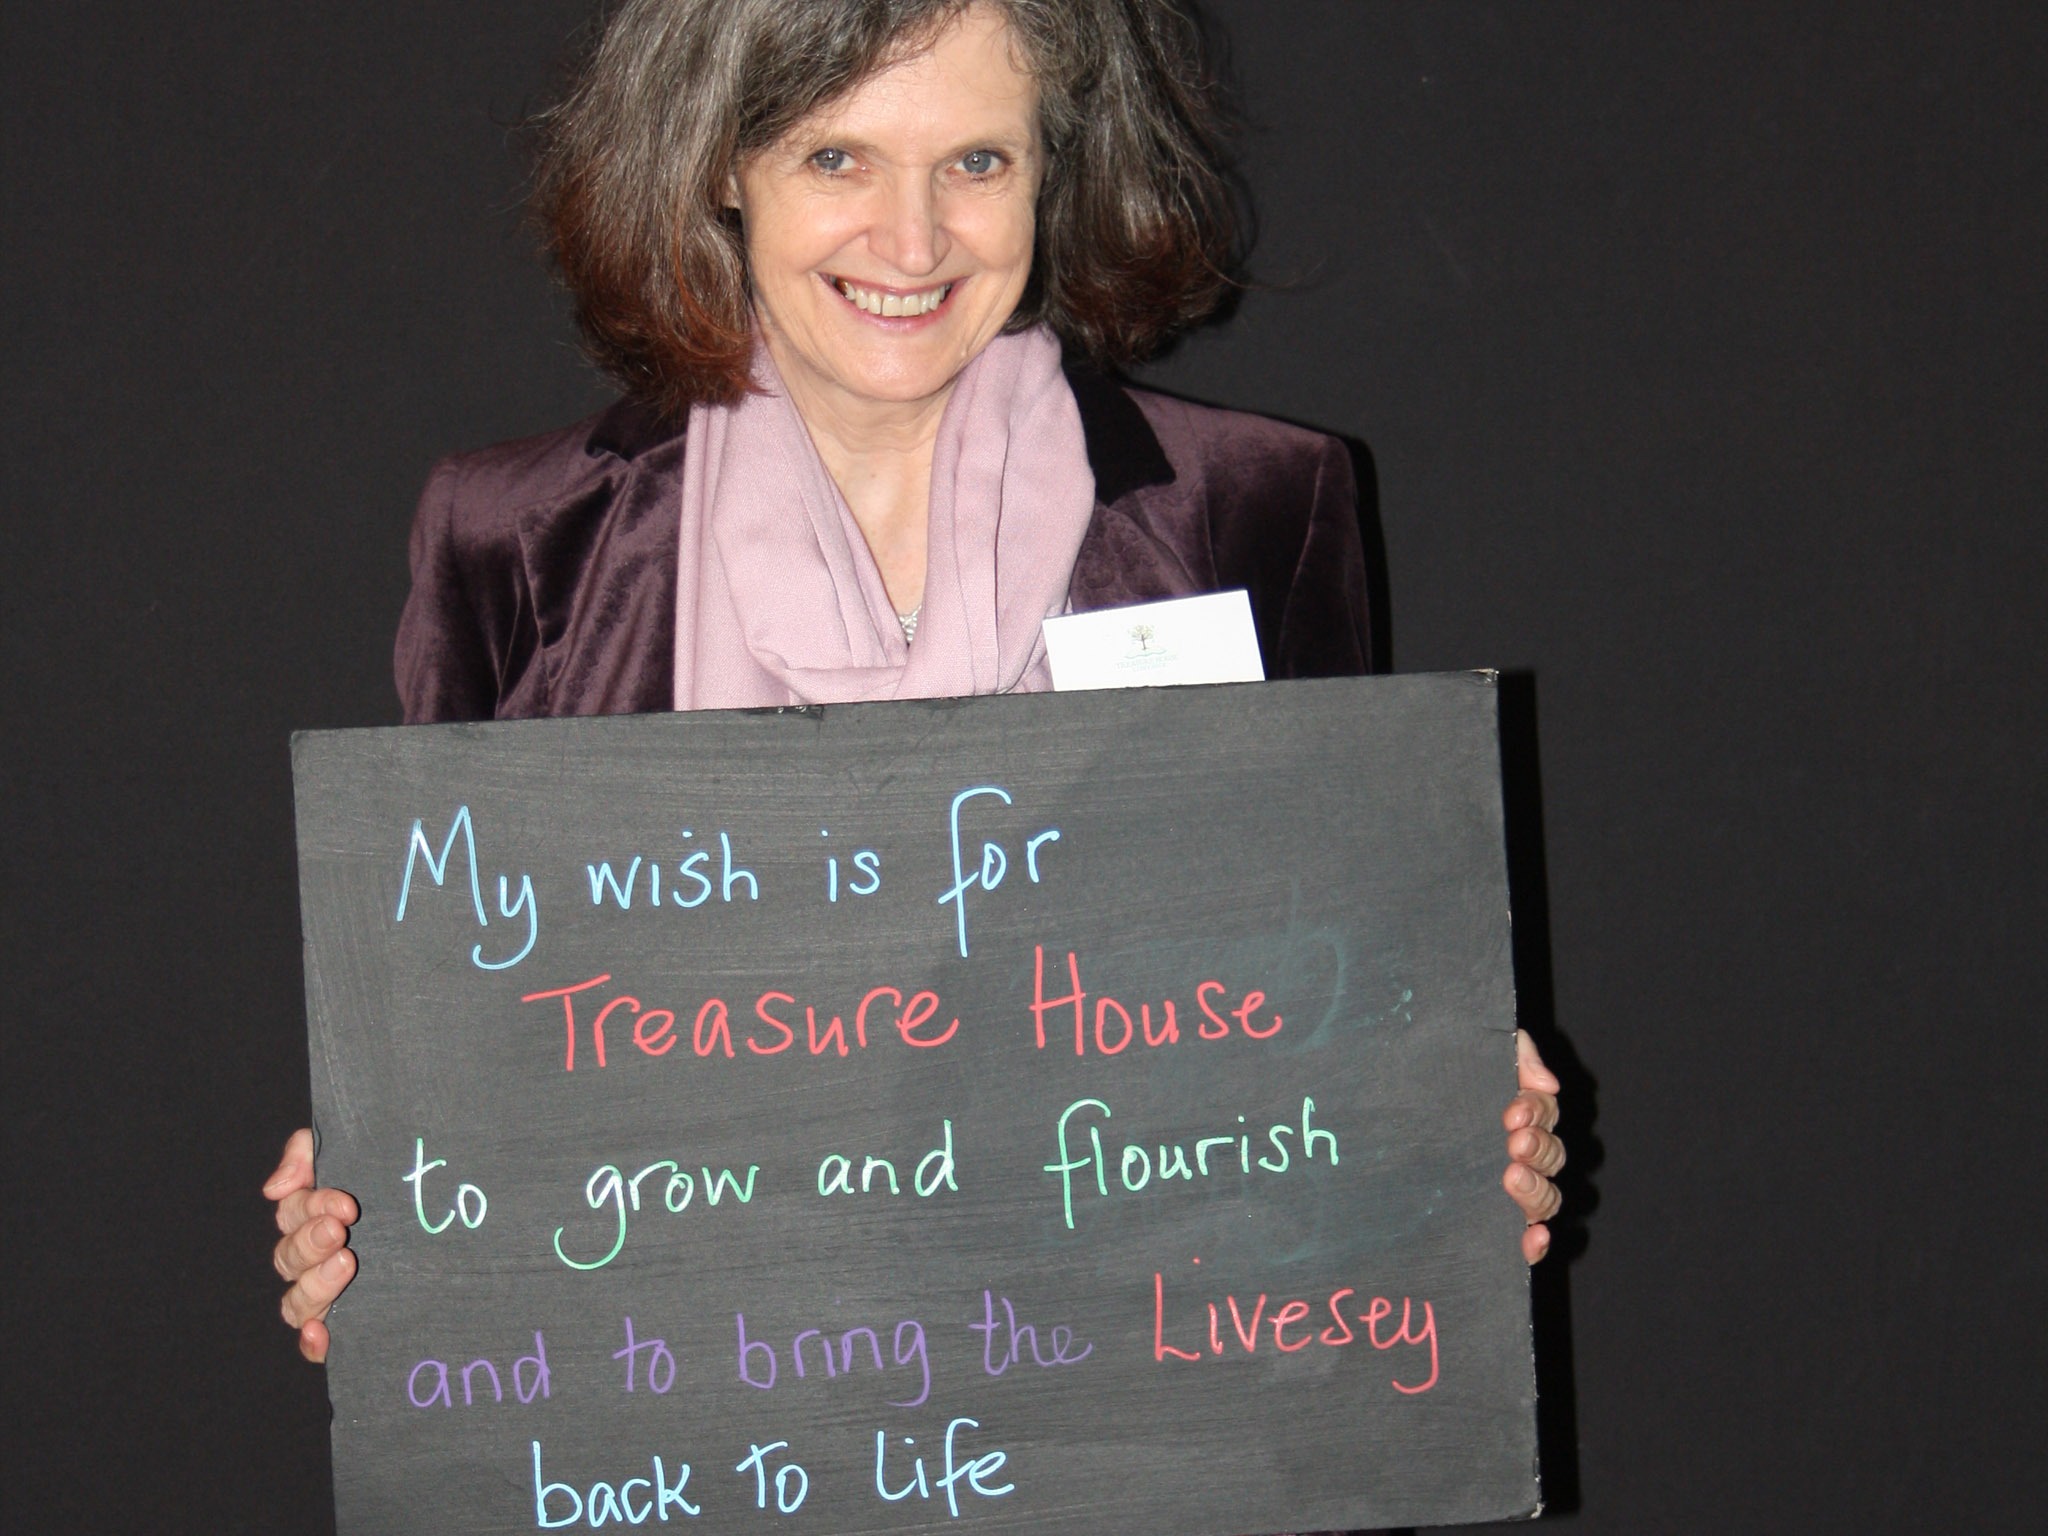 TREASURE HOUSE
My wish is for
Treasure House
to grow and flourish
and to bring the Livesey
back to life